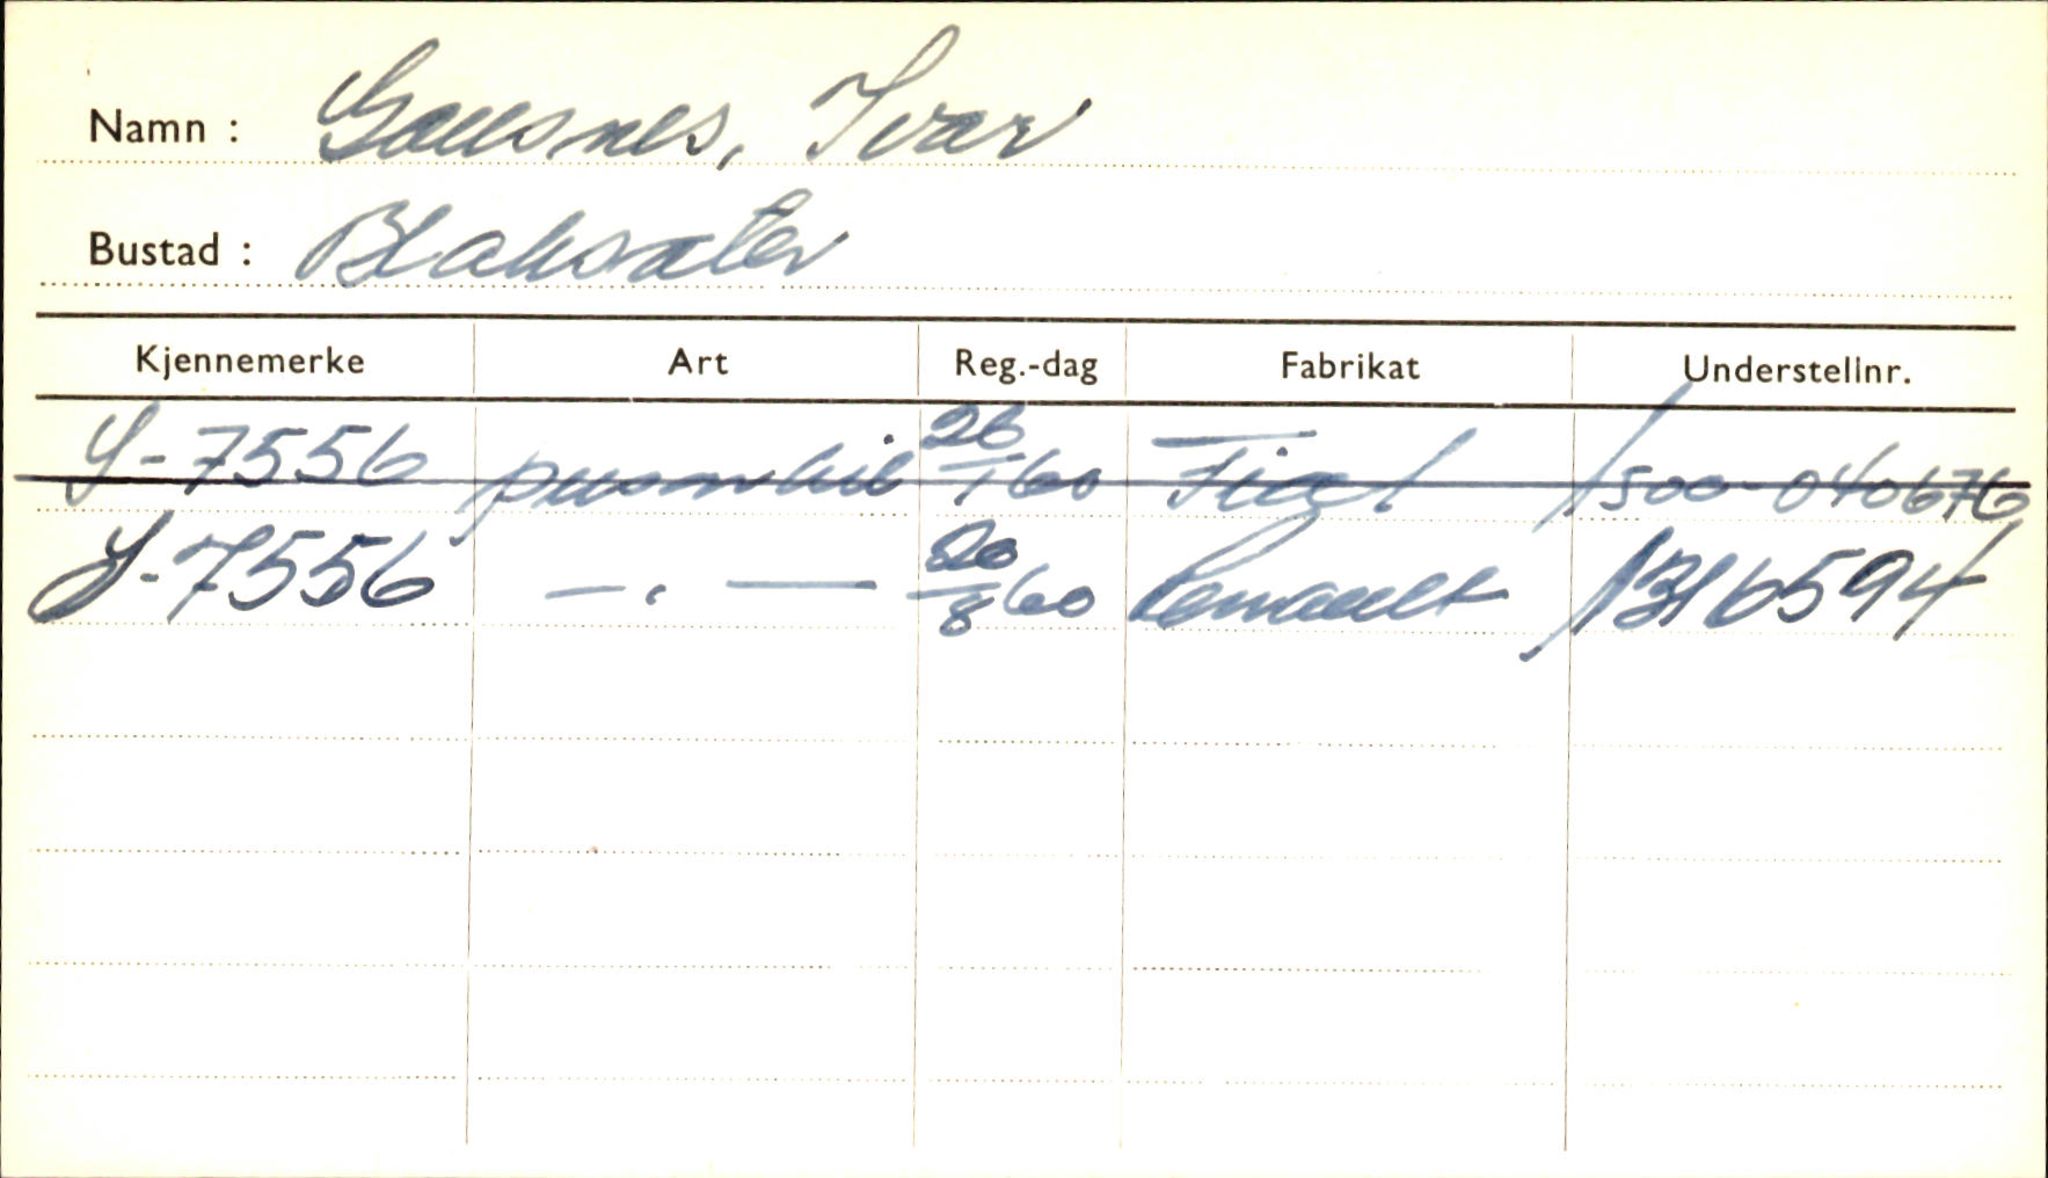 Namn : Gausnes, Ivar
Bustad : Blaksæter
Kjennemerke Art Reg.-dag Fabrikat Understellnr.
S-7556 personbil 26/1 60 Fiat 500-040676
S-7556 —„— 20/8 60 Renault 1316594